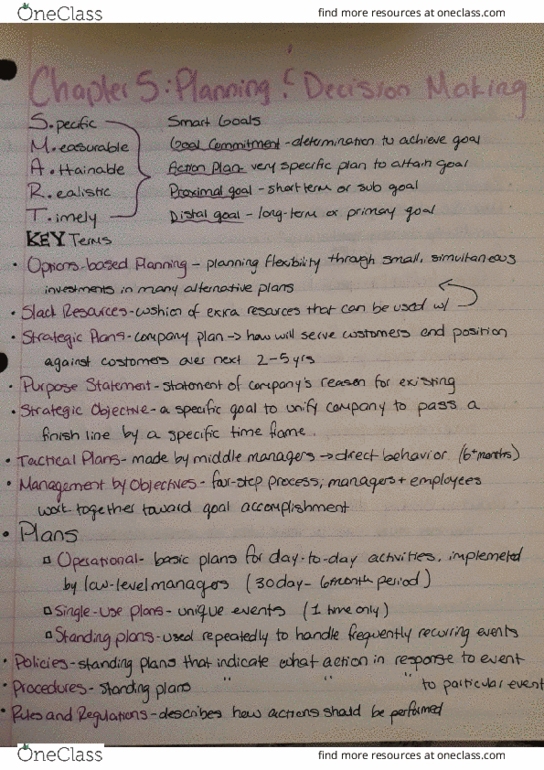 OneClass find more resources at oneclass.com
Chapter 5: Planning & Decision Making
S.pecific Smart Goals
M.easurable Goal Commitment - determination to achieve goal
A.ttainable Action Plan - very specific plan to attain goal
R.ealistic Proximal goal - short term or sub goal
T.imely Distal goal - long-term or primary goal
KEY Terms
• Options-based Planning - planning flexibility through small, simultaneous
investments in many alternative plans
• Slack Resources - cushion of extra resources that can be used w/
• Strategic Plans - company plan → how will serve customers and position
against costomers over next 2-5yrs
• Purpose Statement - statement of company's reason for existing
• Strategic Objective - a specific goal to unify company to pass a
finish line by a specific time frame.
• Tactical Plans - made by middle managers → direct behavior (6+months)
• Management by Objectives - four-step process; managers + employees
work together toward goal accomplishment
• Plans
Operational - basic plans for day-to-day activities, implemeted
by low-level managers (30day - 6month period)
Single-Use Plans - unique events (1 time only)
Standing plans - used repeatedly to handle frequently recurring events
• Policies - standing plans that indicate what action in response to event
• Procedures - standing plans " " " to particular event
• Rules and Regulations - describes how actions should be performed
OneClass find more resources at oneclass.com